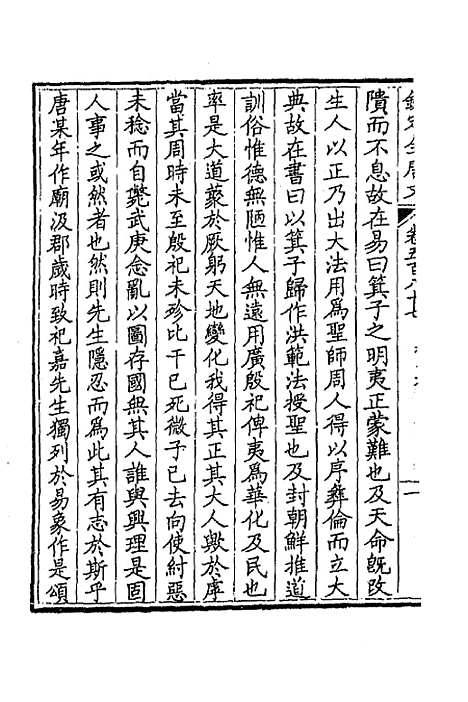 欽定全唐文　卷五百八十七　　　一
隤而不息故在易曰箕子之明夷正蒙難也及天命旣改
生人以正乃出大法用爲聖師周人得以序彝倫而立大
典故在書曰以箕子歸作洪範法授聖也及封朝鮮推道
訓俗惟德無陋惟人無遠用廣殷祀俾夷爲華化及民也
率是大道藂於厥躬天地變化我得其正其大人歟於虖
當其周時未至殷祀未殄比干已死微子已去向使紂惡
未稔而自斃武庚念亂以圖存國無其人誰與興理是固
人事之或然者也然則先生隱忍而爲此其有志於斯乎
唐某年作廟汲郡歲時致祀嘉先生獨列於易象作是頌